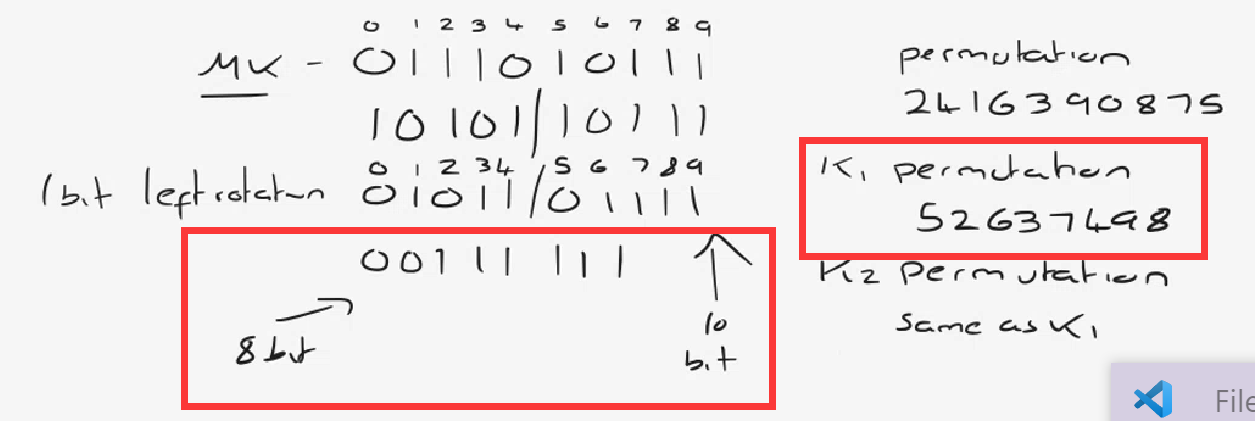 0 1 2 3 4 5 6 7 8 9
MK - 0111010111
10101/10111
0 1 2 3 4 / 5 6 7 8 9
1 bit left rotation 01011/01111
00111111
8 bit
10
bit
permutation
2416390875
K1 permutation
52637498
K2 permutation
same as K1
File